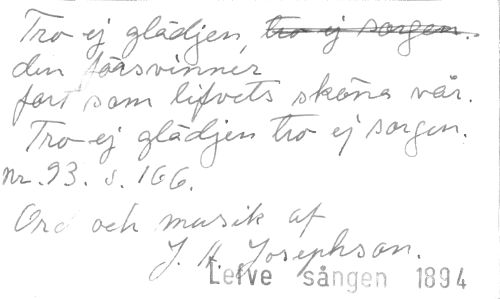 Tro ej glädjen, tro ej sorgen.
den försvinner
fort som lifvets sköna vår.
Tro ej glädjen tro ej sorgen.
nr. 93. s. 166.
Ord och musik af
J. A. Josephson.
Lefve sången 1894